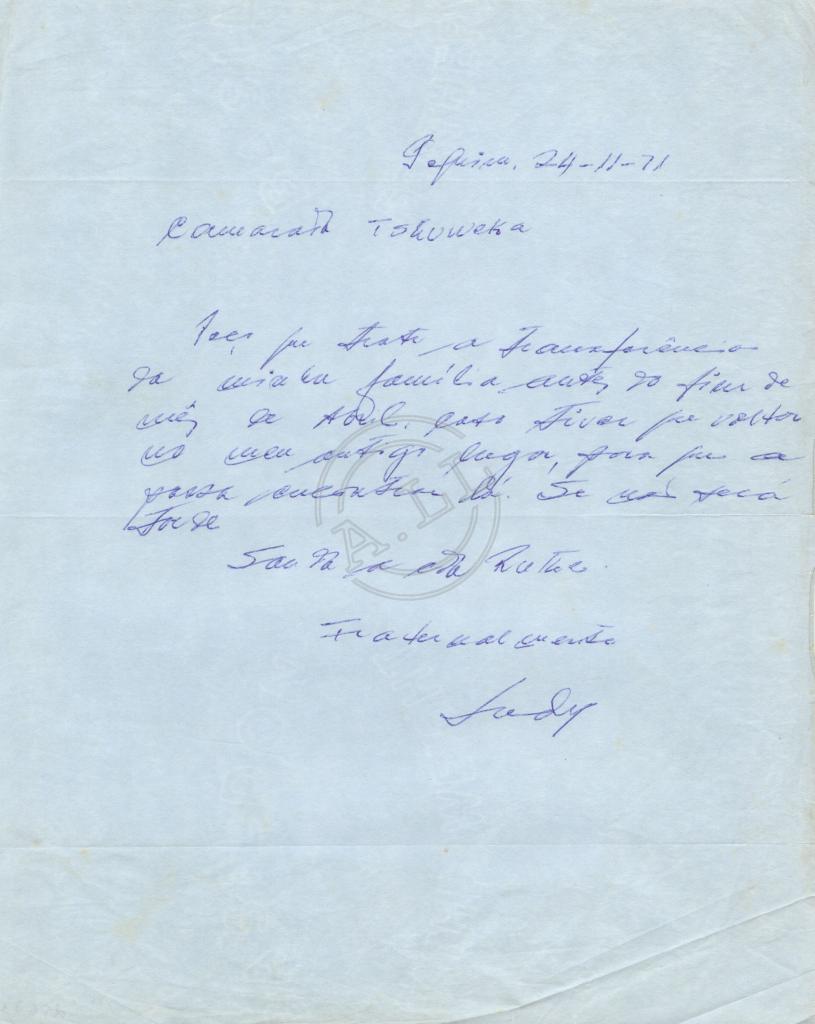 Pequim, 24-11-71
Camarada Tshiweka
Peço que trate a transferência
da minha família antes do fim de
mês de Abril, caso tiver que voltar
no meu antigo lugar, para que a
possa encontrar lá. Se não será
tarde
Saudá
Fraternalmente
A.LL